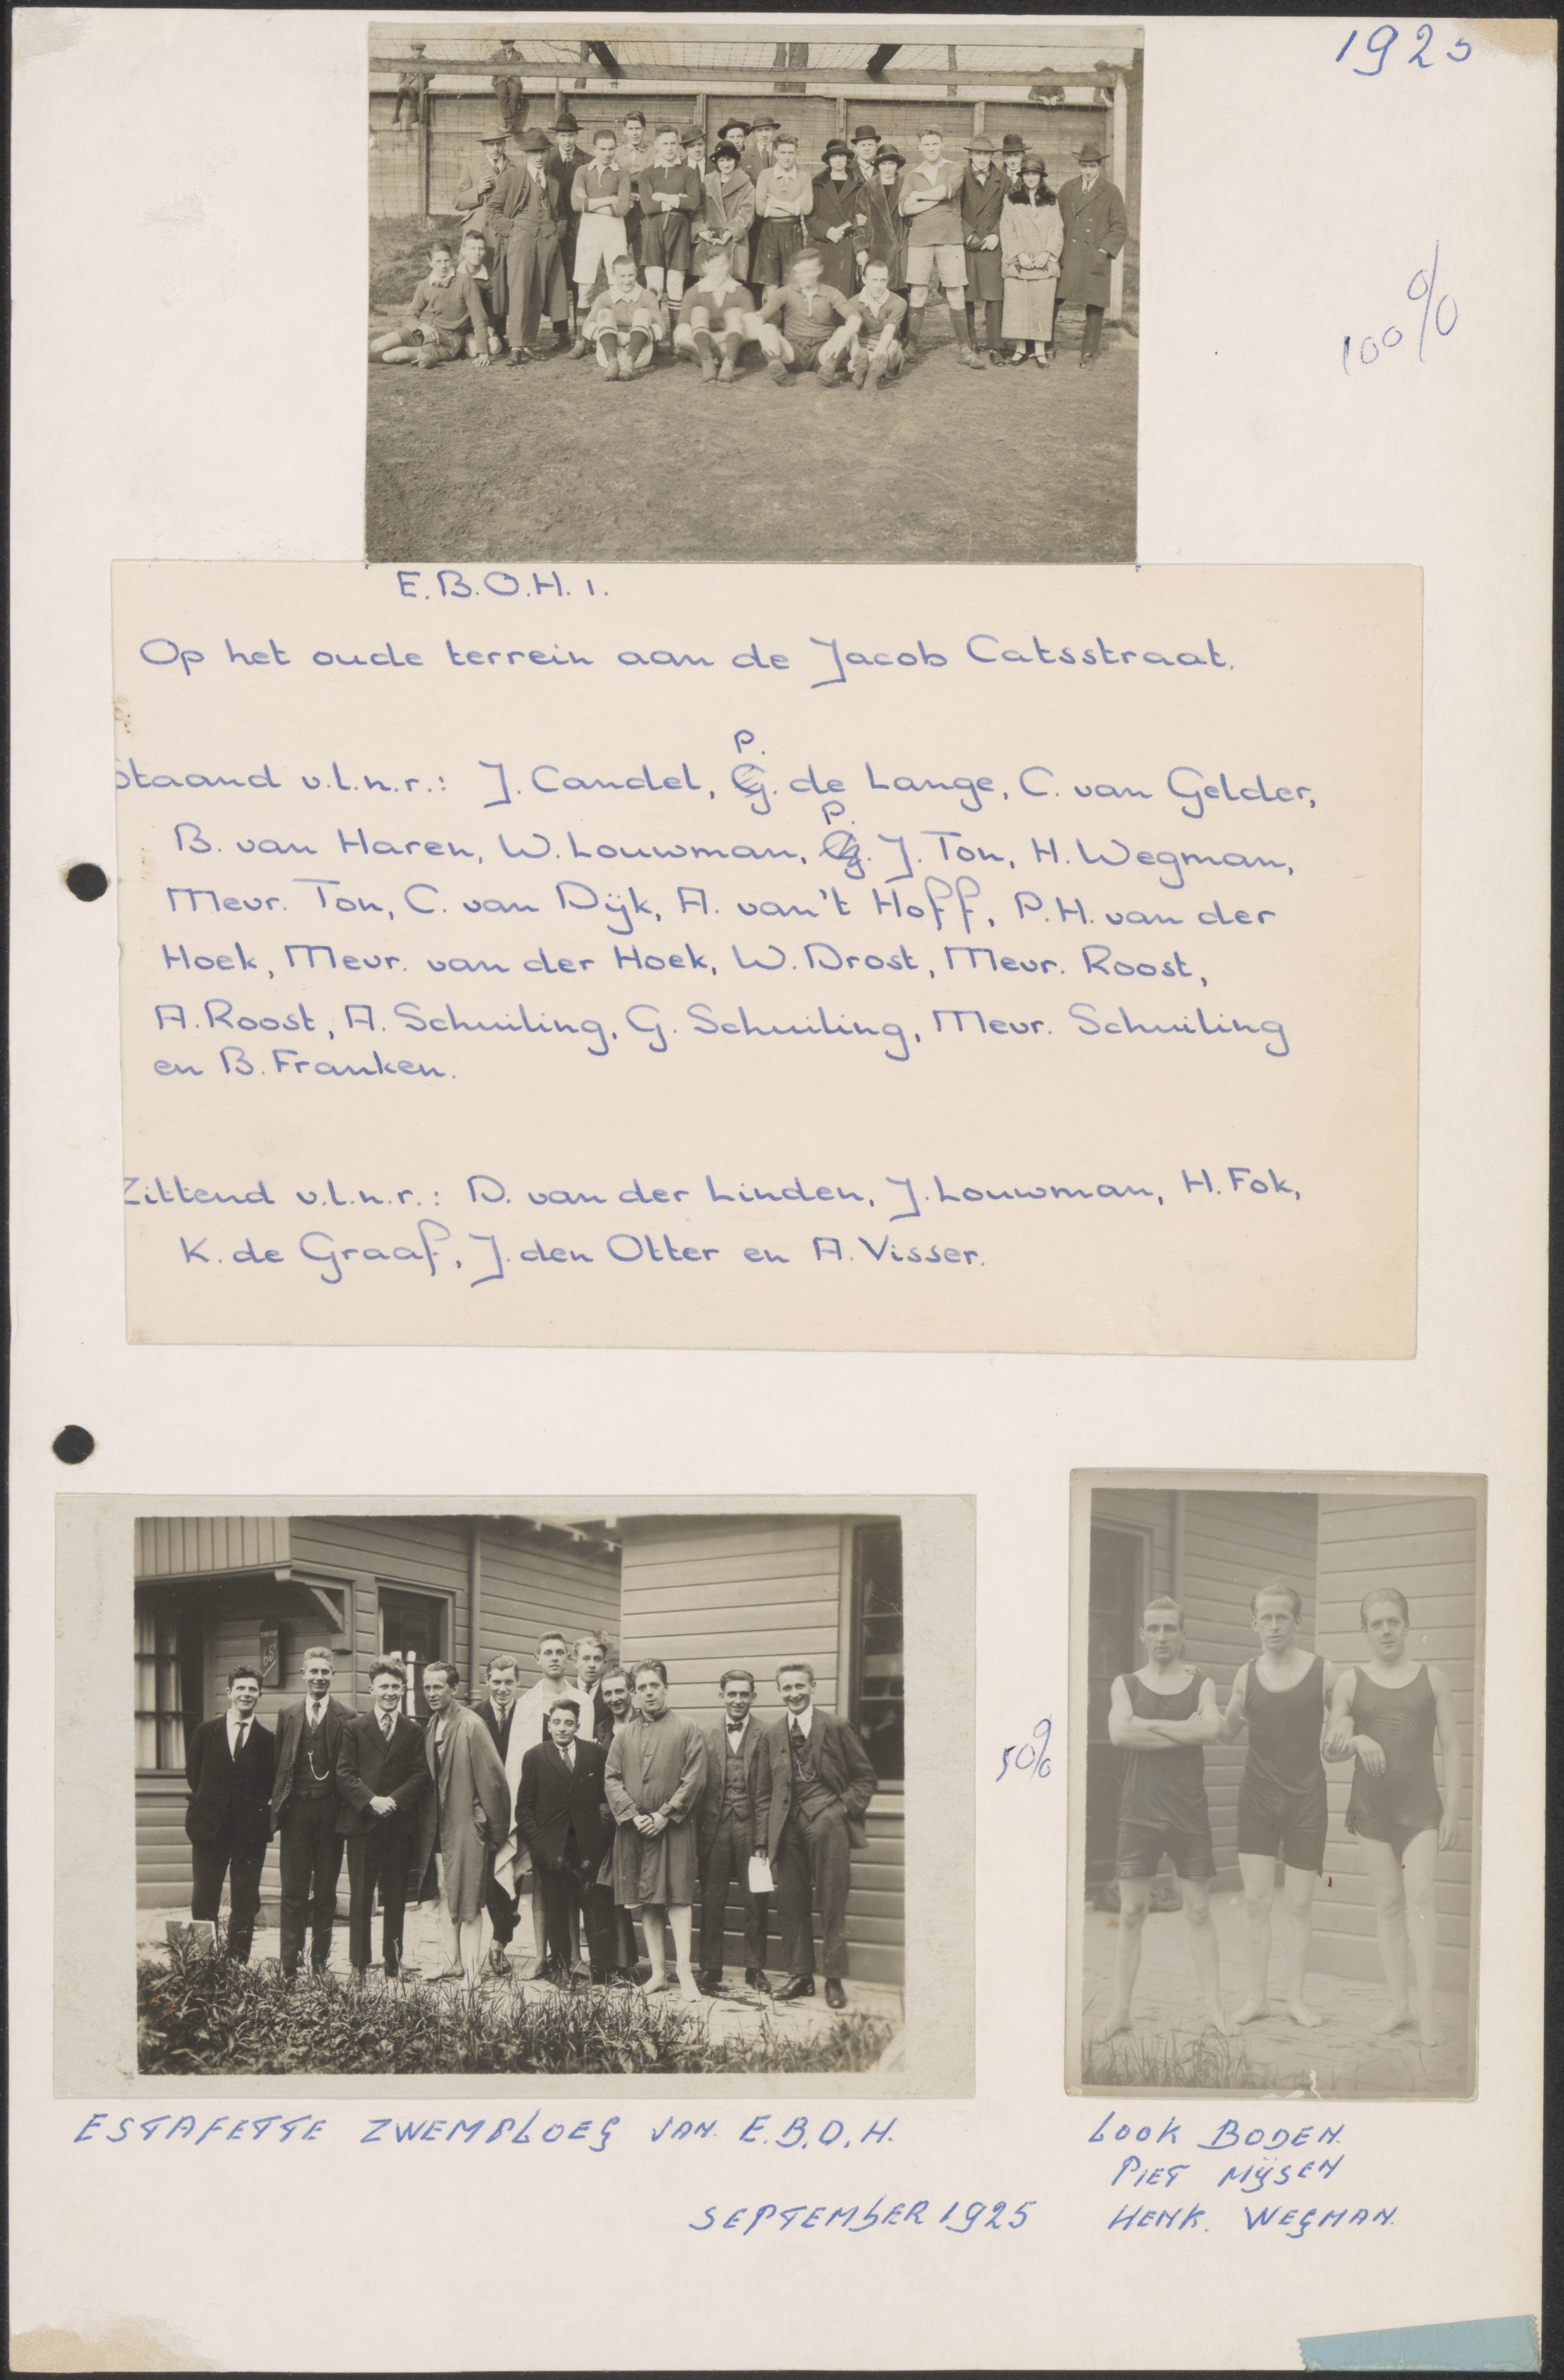 1925
100%
E.B.O.H. 1.
Op het oude terrein aan de Jacob Catsstraat.
Staand v.l.n.r.: J. Candel, P. de Lange, C. van Gelder,
B. van Haren, W. Louwman, P. J. Ton, H. Wegman,
Mevr. Ton, C. van Dijk, A. van't Hoff, P.H. van der
Hoek, Mevr. van der Hoek, W. Drost, Mevr. Roost,
A. Roost, A. Schuiling, G. Schuiling, Mevr. Schuiling
en B. Franken.
Zittend v.l.n.r.: D. van der Linden, J. Louwman, H. Fok,
K. de Graaf, J. den Otter en A. Visser.
50%
ESTAFETTE ZWEMPLOEG VAN. E.B.O.H.
SEPTEMBER 1925
LOOK BODEN.
PIET MIJSEN
HENK. WEGMAN.